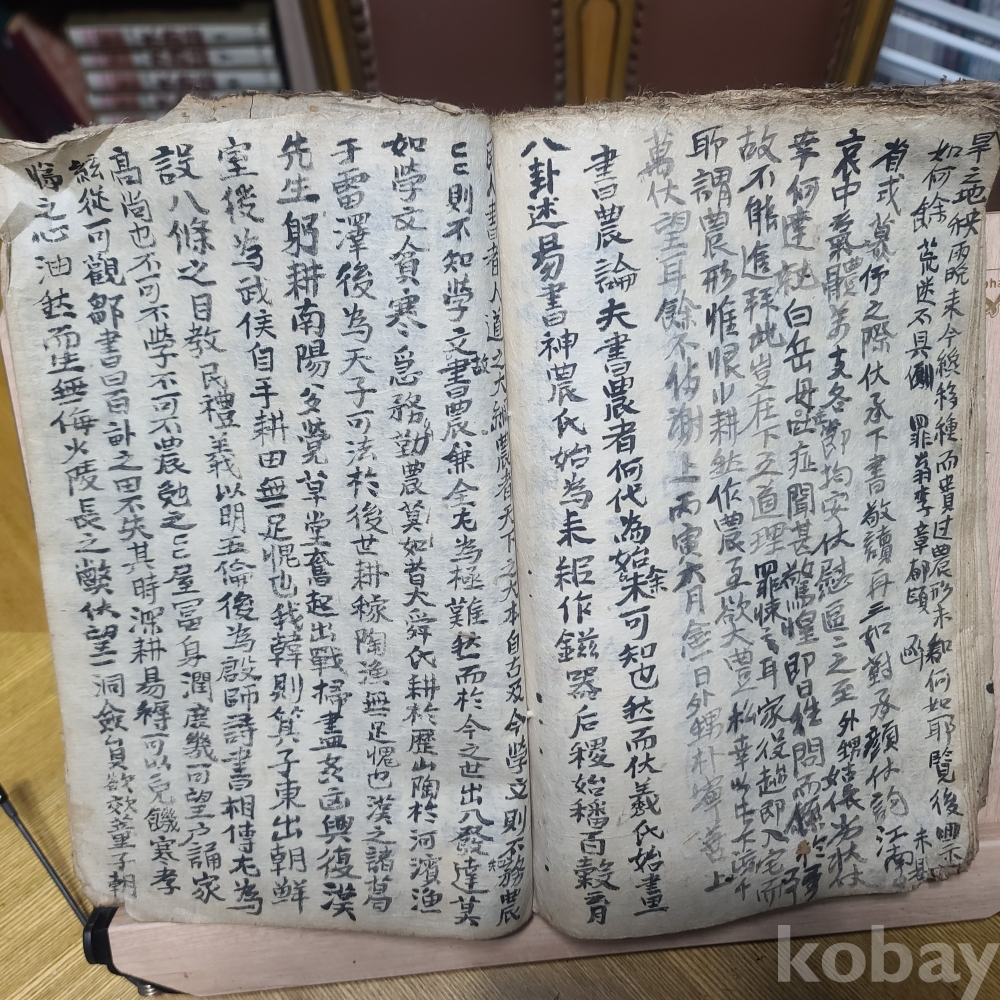 旱之地秧雨晩来今纔移種而貴辺農形未知何如耶覽後興示
如何餘荒迷不具 罪翁李章郁頓
省式慕仰之際伏承下書敬讀再三如對承顔伏詢江南
哀中氣體万支各節均安伏慰區之至外甥姑保为状伏
幸何達就白岳母主症聞甚驚惶即日往問而係
故不能進拜此豈在下之道理罪悚之耳家役越即入宅而
耶謂農形惟恨小耕然作農互欲大豊松幸
萬伏望耳餘不備謝上丙寅六月念一日外甥朴寧善上
書農論夫書農者何代為始余未可知也然而伏羲氏始畫
八卦述易書神農氏始為耒耟作鎡器后稷始播百穀
書者人道之大綱農者天下之大本自古及今學文則不務農
則不知學文故書農兼全尤為極難然而於今之世出入發達莫
如學文貧寒急務勤農莫如昔大舜氏耕於歷山陶於河濱漁
于雷澤後為天子可法於後世耕稼陶漁無足愧也漢之諸葛
先生躬耕南陽多覺草堂奮起出戰掃盡妄凶興復漢
室後為武侯自手耕田無足愧也我韓則箕子東出朝鮮
設八條之目教民禮義以明五倫後為殷師詩書相傳尤為
高尚也不可不學不可不農勉之屋富身潤庶幾可望乃誦家
絃從可觀鄒書曰百畝之田不失其時深耕易耨可以免饑寒孝
悌之心油然而生無侮少陵長之獘伏望洞僉員欲效童子朝